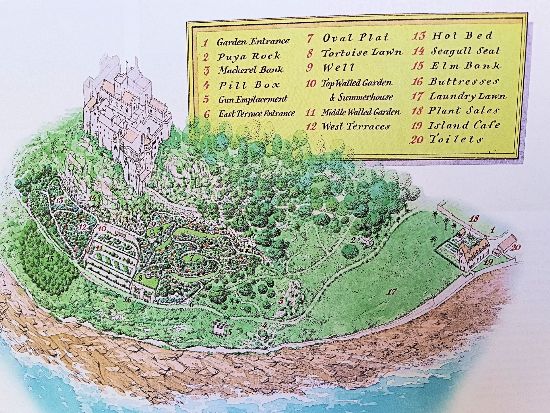 1 Garden Entrance
2 Puya Rock
3 Mackerel Bank
4 Pill Box
5 Gun Emplacement
6 East Terrace Entrance
7 Oval Plat
8 Tortoise Lawn
9 Well
10 Top Walled Garden
& Summerhouse
11 Middle Walled Garden
12 West Terraces
13 Hot Bed
14 Seagull Seat
15 Elm Bank
16 Buttresses
17 Laundry Lawn
18 Plant Sales
19 Island Cafe
20 Toilets
18
1
20
17